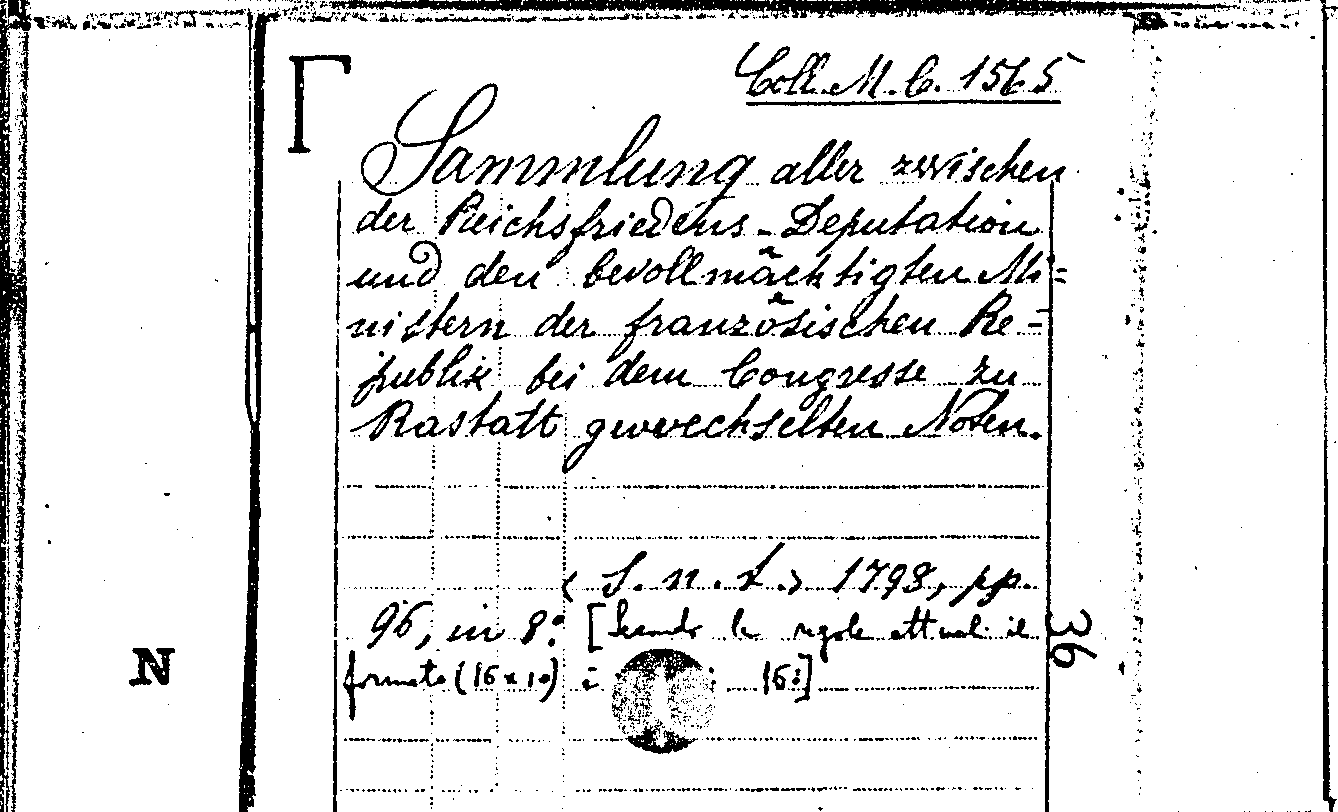 Coll. M. C. 1565
Γ
Sammlung aller zwischen
der Reichsfriedens-Deputation
und den bevollmächtigten Mi=
nistern der französischen Re-
publik bei dem Congresse zu
Rastatt gewechselten Noten.
(S. n. t.) 1798, pp.
96, in 8.º [Secondo le regole attuali il
formato (16 x 10) è 16º]
36
N